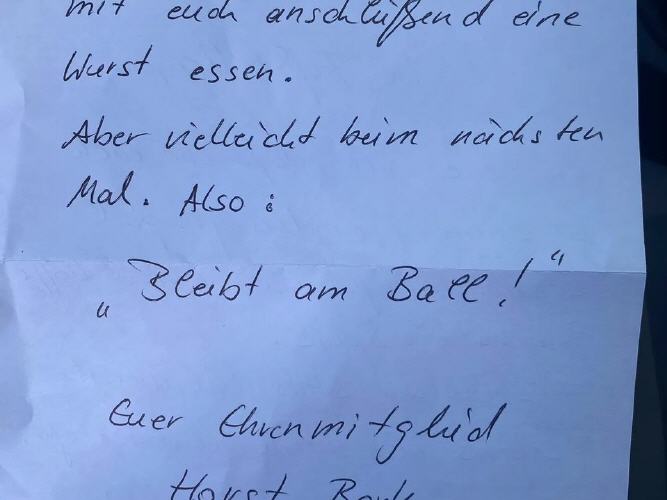 mit euch anschlüßend eine
Wurst essen.
Aber vielleicht beim nächsten
Mal. Also :
„Bleibt am Ball!“
Euer Ehrenmitglied
Horst